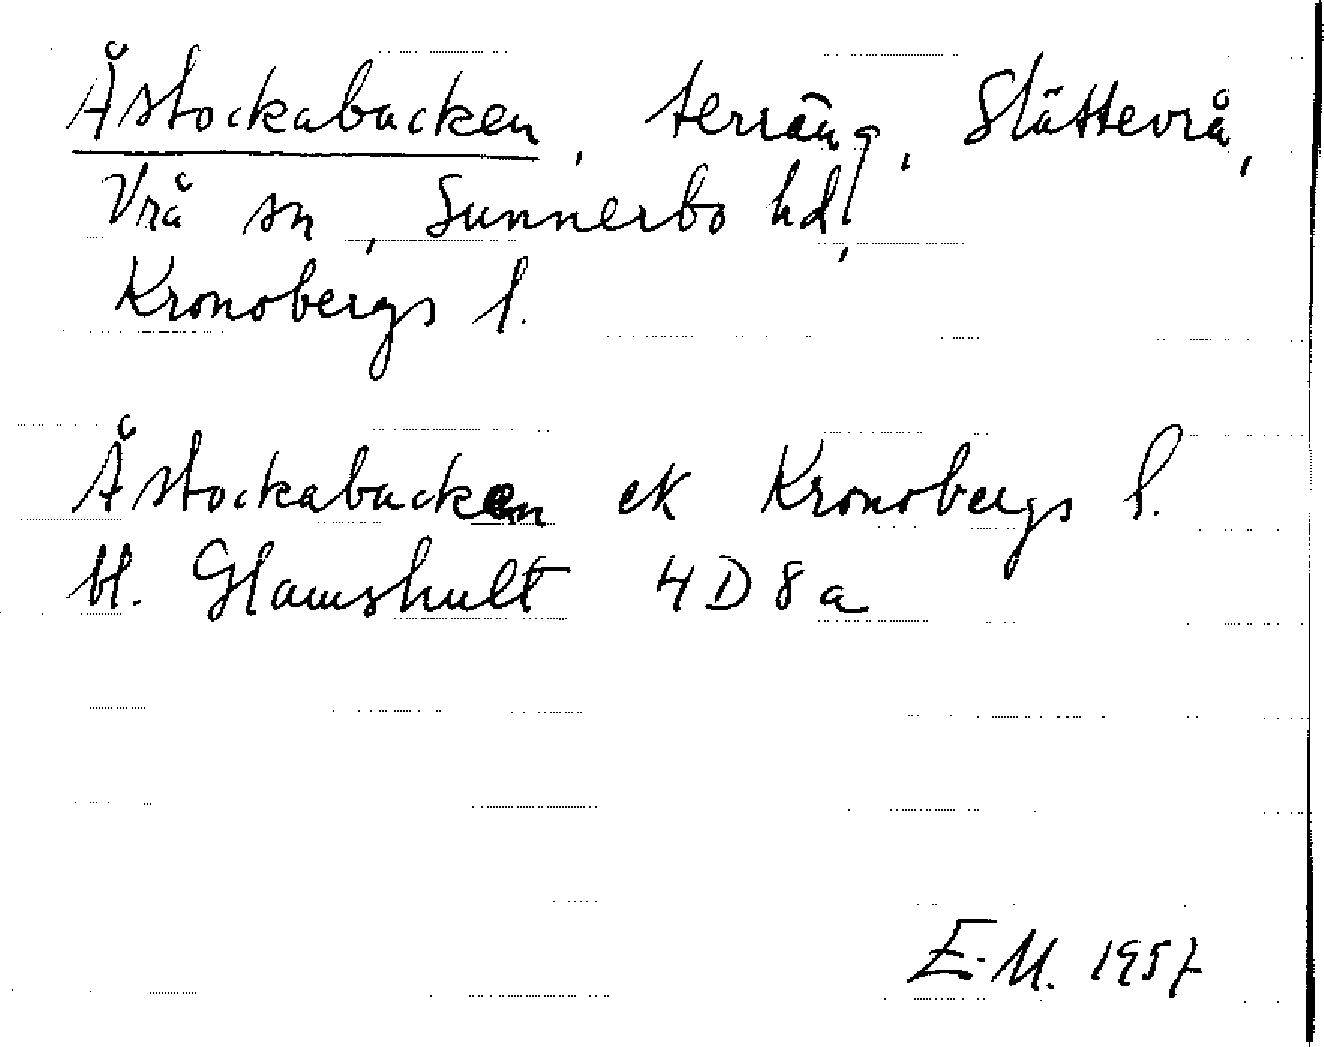 Åstockabacken, terräng, Slättevrå,
Vrå sn, Sunnerbo hd,
Kronobergs l.
Åstockabacken ek Kronobergs l.
bl. Glamshult 4 D 8 a
E.M. 1957